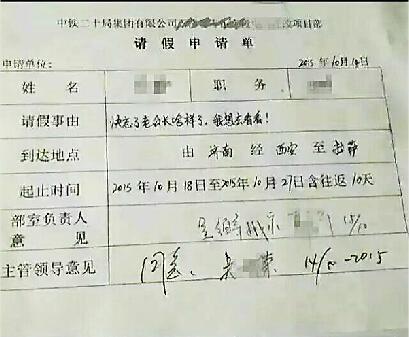 中铁二十局集团有限公司 项目部
请假申请单
申请单位: 2015年10月14日
姓名 职务
请假事由 快忘了老公长啥样了,我想去看看!
到达地点 由 济南 经 西安 至
起止时间 2015年10月18日至2015年10月27日含往返10天
部室负责人
意见
主管领导意见 同意 14/10-2015